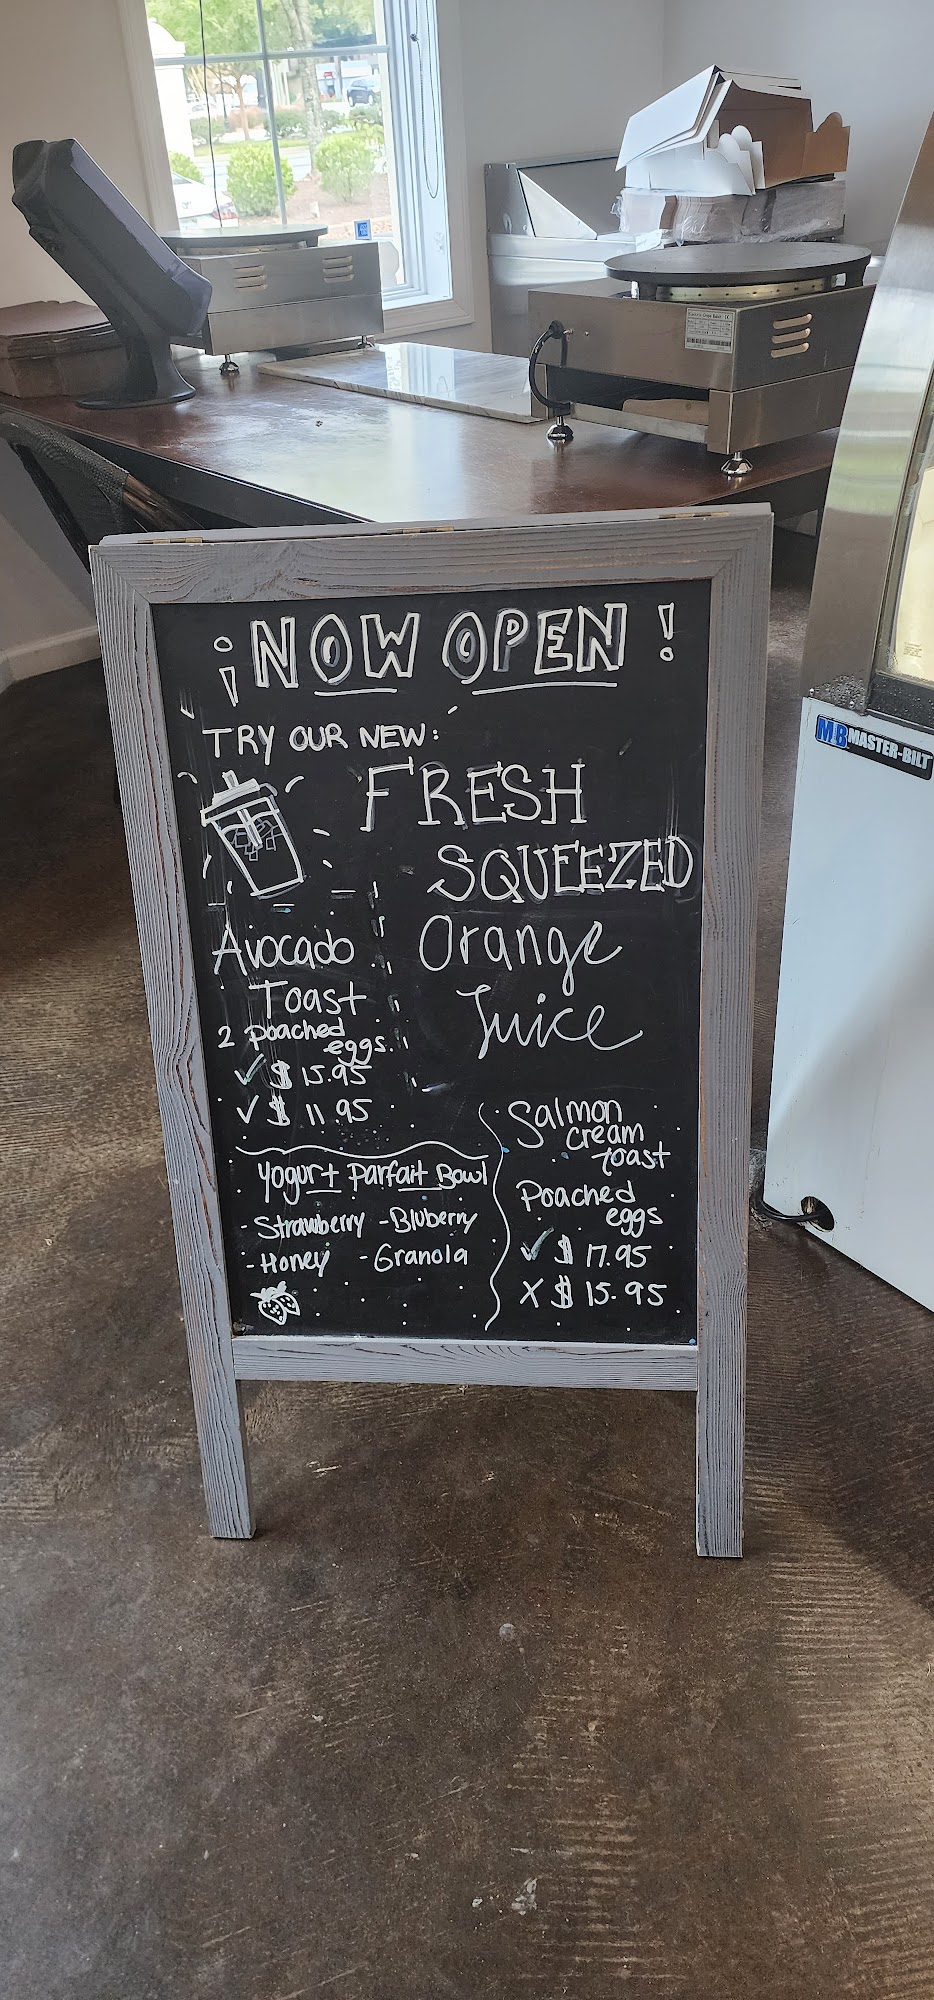 ¡NOW OPEN!
TRY OUR NEW:
FRESH
SQUEEZED
Orange
Juice
Avocado
Toast
2 poached
eggs.
✓ $ 15.95
✓ $ 11.95
Yogurt Parfait Bowl
- Strawberry - Bluberry
- Honey - Granola
Salmon
cream
toast
Poached
eggs
✓ $ 17.95
X $ 15.95
MB MASTER-BILT